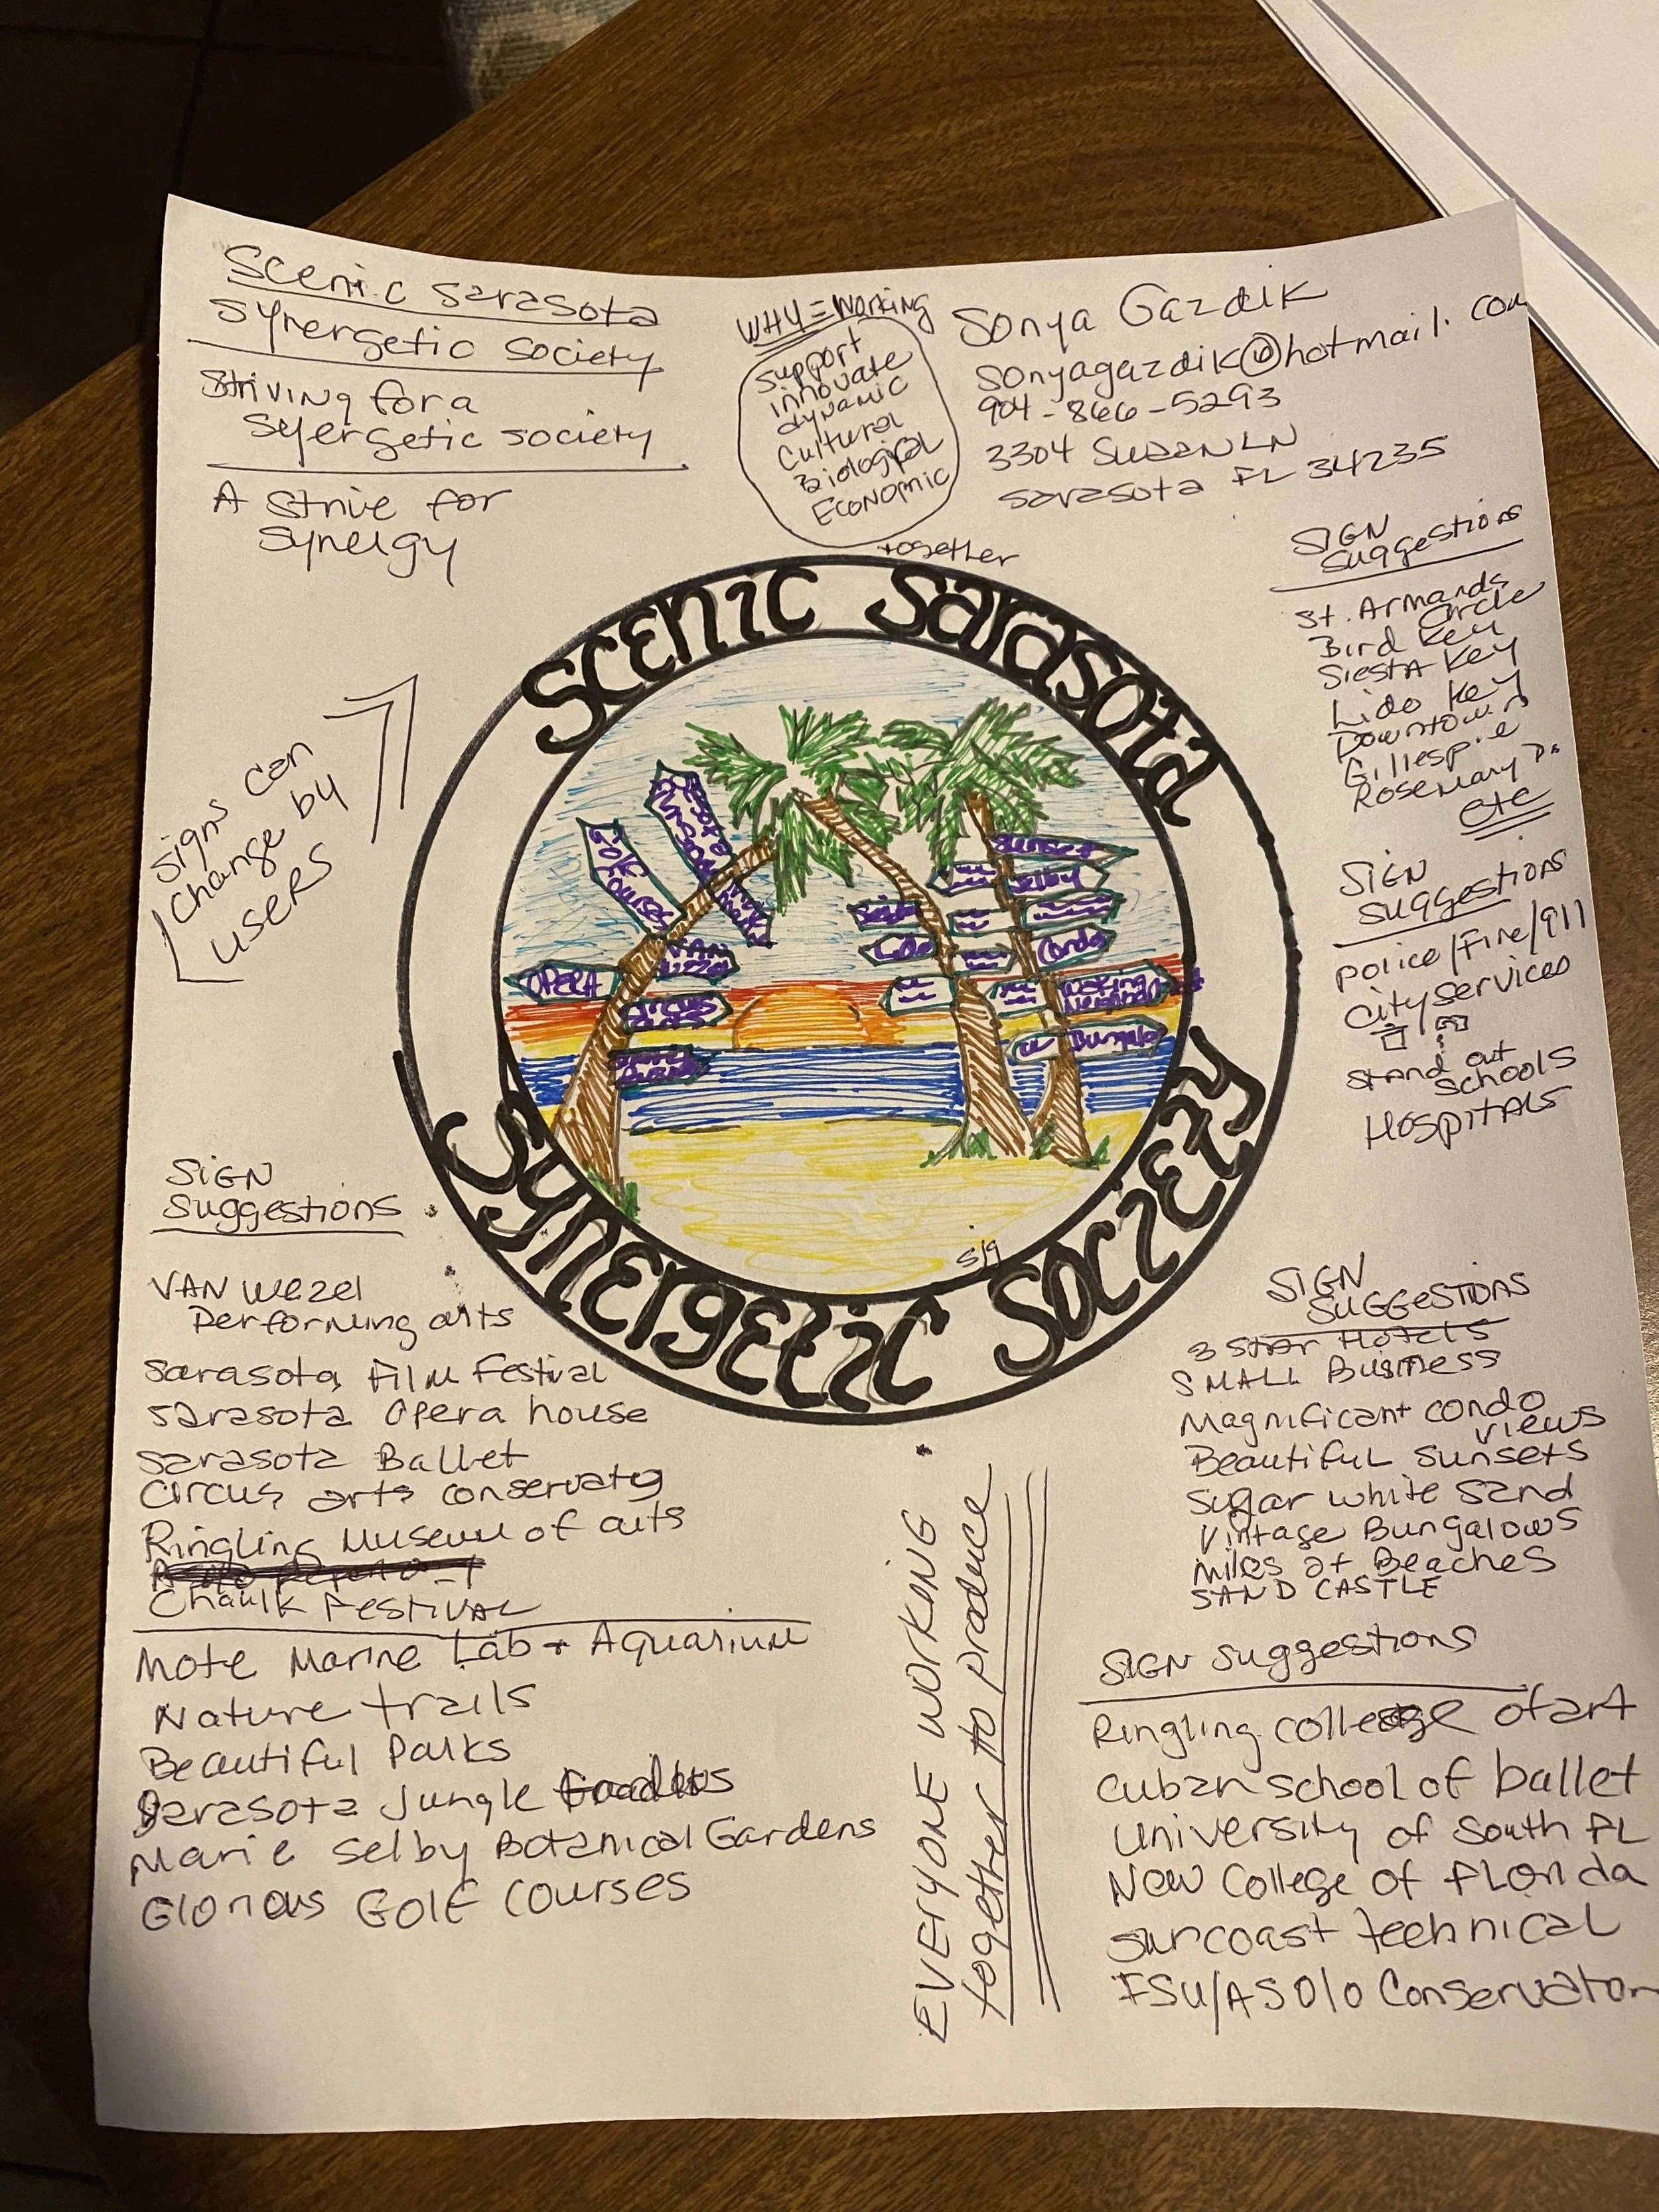 Scenic Sarasota
Synergetic Society
Striving for a
Syergetic society
A Strive for
Synergy
WHY = Working
Support
innovate
dynamic
Cultural
Biological
Economic
together
Sonya Gazdik
sonyagazdik@hotmail.com
904-866-5293
3304 Susan LN
Sarasota FL 34235
SIGN
Suggestions
St. Armands
Circle
Bird Key
Siesta Key
Lido Key
Downtown
Gillespie
Rosemary D.
etc
Signs can
change by
users
SIGN
Suggestions
Police/Fire/911
City services
Stand out
Schools
Hospitals
Scenic Sarasota
OPERA
Golf
VAN
Wezel
Circus
arts
Sunset
Selby
Siesta
Lido
Condo
Bungalo
S/g
Synergetic Society
SIGN
Suggestions
VAN Wezel
Performing arts
Sarasota Film Festival
Sarasota Opera house
Sarasota Ballet
Circus arts conservatg
Ringling Museum of arts
Chaulk Festival
Mote Marine Lab + Aquarium
Nature trails
Beautiful Parks
Sarasota Jungle
Marie Selby Botanical Gardens
Glorious Golf Courses
EVERYONE WORKING
together to produce
SIGN
SUGGESTIONS
3 Star Hotels
SMALL Business
Magnificant condo
views
Beautiful Sunsets
Sugar white sand
Vintage Bungalows
Miles of Beaches
SAND CASTLE
SIGN Suggestions
Ringling college of art
Cuban school of ballet
University of South FL
New College of Florida
Suncoast technical
FSU/ASOlO Conservator